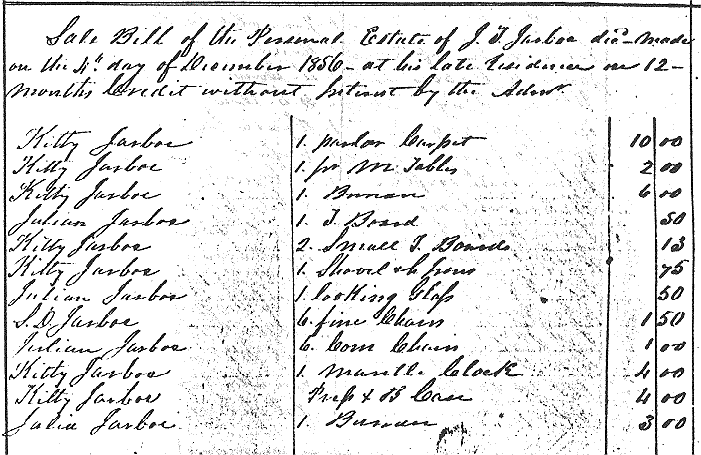 Sale Bill of the Personal Estate of J. T. Jarboe dec'd made
on the 4th day of December 1856 at his late residence on 12
months Credit without Interest by the Admr
Kitty Jarboe 1. parlor Carpet 10 00
Kitty Jarboe 1. pr M. Tables 2 00
Kitty Jarboe 1. Bureau 6 00
Julian Jarboe 1. T. Board 50
Kitty Jarboe 2. Small T. Boards 13
Kitty Jarboe 1. Shovel & Irons 75
Julian Jarboe 1. looking Glass 50
S. D. Jarboe 6. fine Chairs 1 50
Julian Jarboe 6. Com Chairs 1 00
Kitty Jarboe 1. Mantle Clock 4 00
Kitty Jarboe Press & B Case 4 00
Julia Jarboe 1. Bureau 3 00